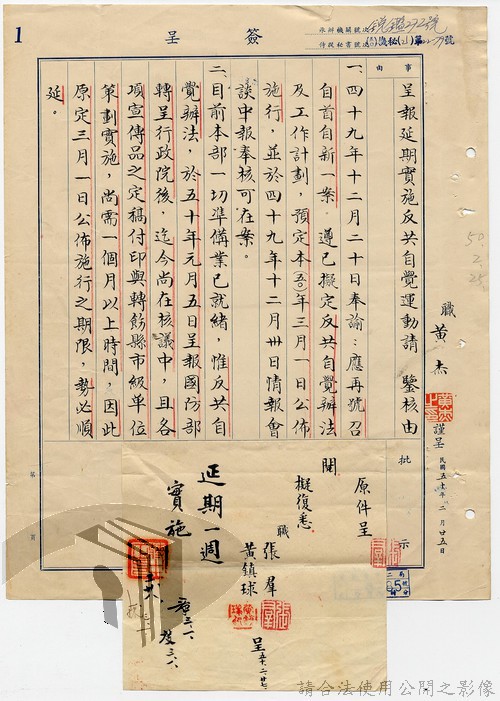 1
簽呈
承辦機關號次
侍從秘書號次
事由
呈報延期實施反共自覺運動請 鑒核由
職 黃杰
謹呈
民國五十年二月廿五日
50. 2. 25.
批示
一、四十九年十二月二十日奉諭：應再號召
自首自新一案，遵已擬定反共自覺辦法
及工作計劃，預定本(五〇)年三月一日公佈
施行，並於四十九年十二月卅日情報會
談中報奉核可在案。
二、目前本部一切準備業已就緒，惟反共自
覺辦法，於五十年元月五日呈報國防部
轉呈行政院後，迄今尚在核議中，且各
項宣傳品之定稿付印與轉飭縣市級單位
策劃實施，尚需一個月以上時間，因此
原定三月一日公佈施行之期限，勢必順
延。
原件呈
閱
擬復悉
職 張群
黃鎮球
呈 五十、二、廿七
延期一週
實施
請合法使用公開之影像